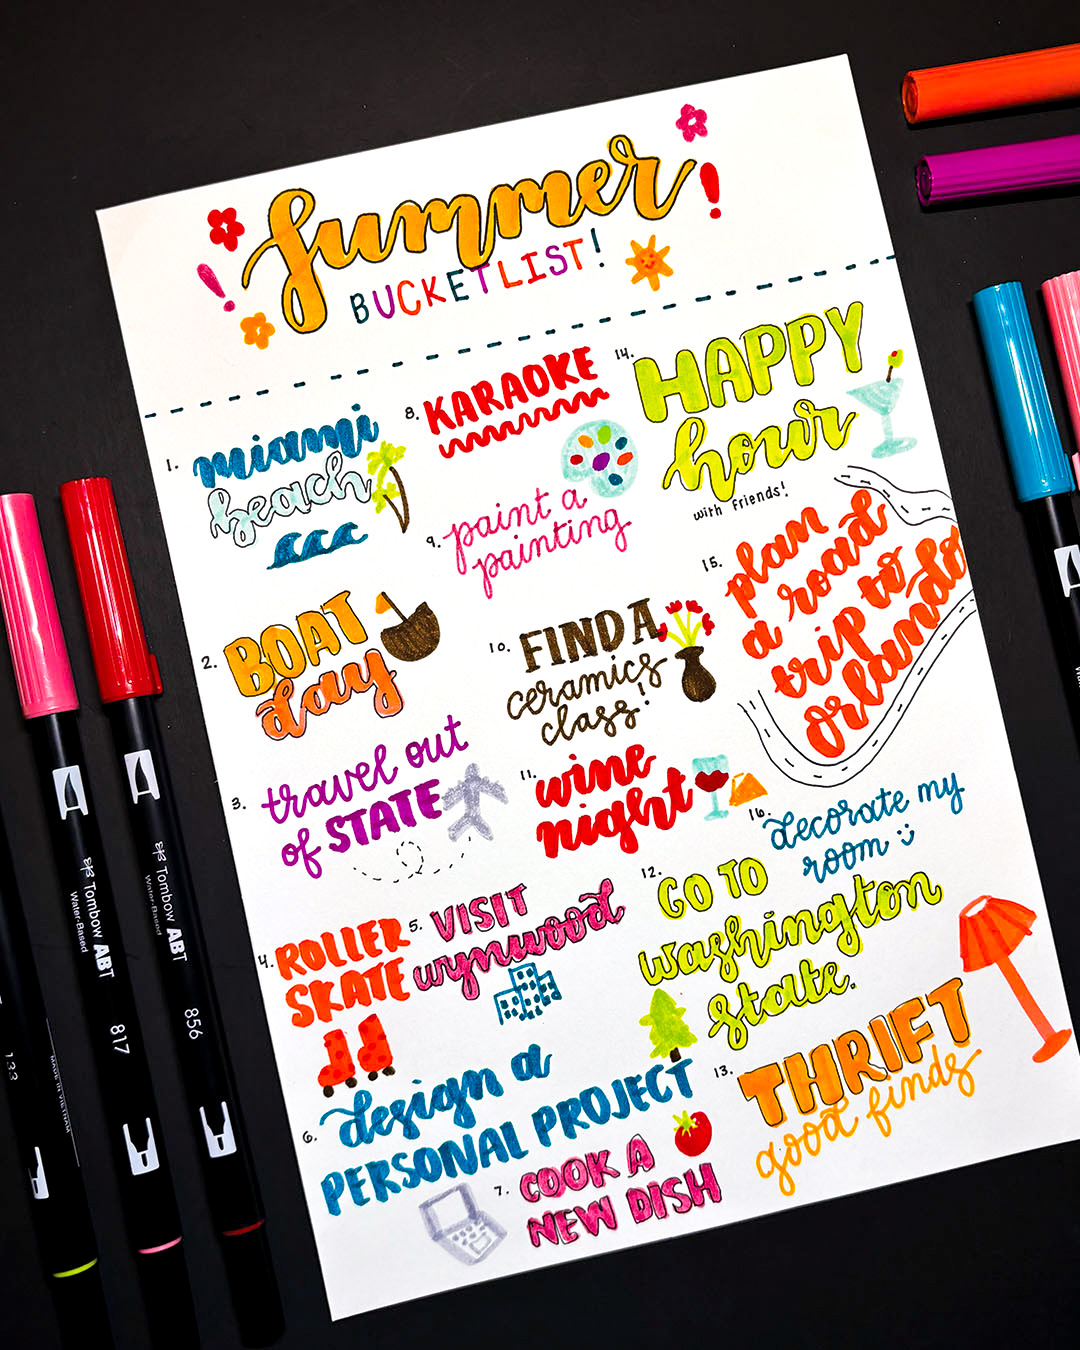 Summer
BUCKET LIST!
1. miami
beach
2. BOAT
day
3. travel out
of STATE
4. ROLLER
SKATE
5. VISIT
wynwood
6. design a
PERSONAL PROJECT
7. COOK A
NEW DISH
8. KARAOKE
9. paint a
painting
10. FIND A
ceramics
class!
11. wine
night
12. GO TO
washington
state.
13. THRIFT
good finds
14. HAPPY
hour
with friends!
15. plan
a road
trip to
orlando
16. decorate my
room
Tombow ABT
Water-Based
817
Tombow ABT
Water-Based
856
133
MADE IN VIETNAM